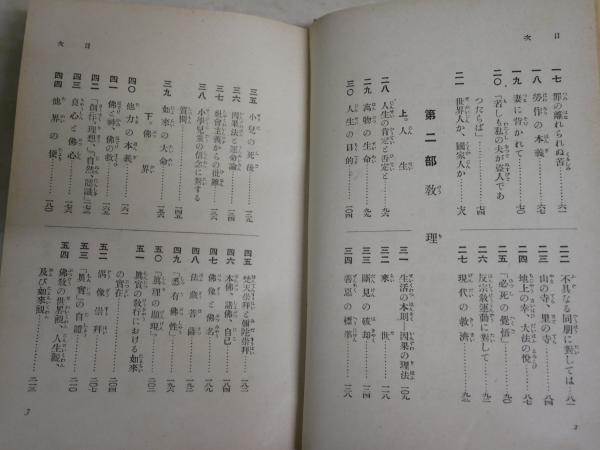 目次
一七 罪の離れられぬ苦……六一
一八 勞作の本義……六七
一九 妻に背かれて……七〇
二〇 「若しも私の夫が盜人であ
つたらば」……七四
二一 世界人か、國家人か……七六
二二 不具なる同朋に對しては……八一
二三 山の寺、里の寺……八四
二四 地上の幸、大法の悅……八七
二五 「必死の覺悟」……九〇
二六 反宗敎運動に對して……九二
二七 現代の救濟……九三
第二部 敎理
上、人生
二八 人生の肯定と否定と……九六
二九 萬物の生命……九八
三〇 人生の目的……一〇四
三一 生活の本卽、因果の理法……一〇九
三二 業世……一一八
三三 斷見の破却……一二四
三四 善惡の標準……一二八
2
目次
三五 小兒の死後……一二九
三六 因果法と運命論……一三一
三七 社會主義からの批難……一三六
三八 小學兒童の信念に對する
質問……一四五
三九 如來の大命……一五六
下、佛界
四〇 他力の本義……一六一
四一 佛と神、佛の敎……一六六
四二 「創存、理想」、「自然、認識」……一七二
四三 良心と佛心……一七六
四四 他界の便……一八〇
四五 梵天崇拜と彌陀崇拜……一八二
四六 本佛、諸佛、自己……一八四
四七 佛像と佛名……一八九
四八 法藏菩薩……一九一
四九 「悉有佛性」……一九八
五〇 「眞理の顯現」……一九九
五一 眞實の敎行における如來
の實在……二〇一
五二 偶像崇拜……二〇四
五三 「眞實」の自證……二〇七
五四 佛敎の世界觀、人生觀、
及び如來觀……二一三
3